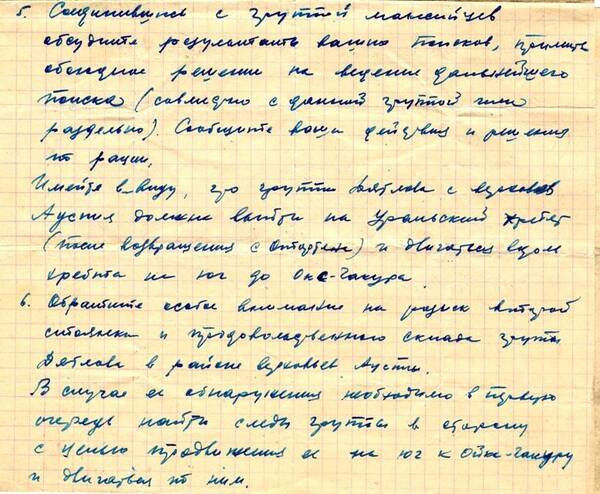 5. Соединившись с группой мансийцев
обсудите результаты ваших поисков, примите
обоюдное решение на ведение дальнейшего
поиска (совместно с данной группой или
раздельно). Сообщите ваши действия и решения
по рации.
Имейте в виду, что группа Дятлова с верховьев
Ауспия должна выйти на Уральский хребет
(после возвращения с Отортена) и двигаться вдоль
хребта на юг до Ойс-Чакура.
6. Обратите особое внимание на розыск второй
стоянки и продовольственного склада группы
Дятлова в районе верховьев Ауспии.
В случае ее обнаружения необходимо в первую
очередь найти следы группы в сторону
с целью продвижения ее на юг к Ойка-Чакуру
и двигаться по ним.